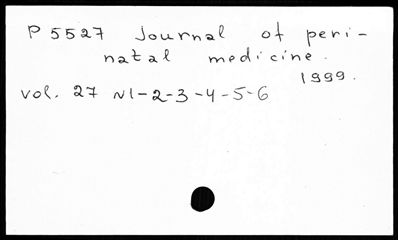 P 5527 Journal of peri-
natal medicine.
1999.
vol. 27 N1-2-3-4-5-6